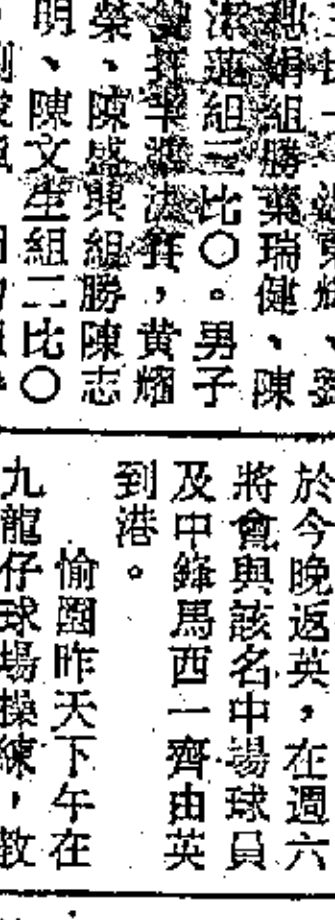 娟組勝葉瑞健、陳
潔蓮組三比〇。男子
半準決賽，黃耀
榮、陳盛興組勝陳志
明、陳文生組二比〇
於今晚返英，在週六
將會與該名中場球員
及中鋒馬西一齊由英
到港。
愉園昨天下午在
九龍仔球場操練，教